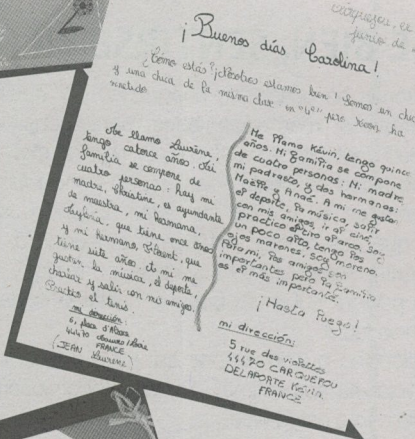 Carquefou, el
junio de
¡Buenos días Carolina!
¿Cómo estás? ¡Nosotros estamos bien! Somos un chico
y una chica de la misma clase en "4e" pero Kévin ha
Me llamo Laurène,
tengo catorce años. Mi
familia se compone de
cuatro personas: hay mi
madre, Christine, es ayudante
de maestra, mi hermana,
que tiene once años
y mi hermano, Florent, que
tiene siete años. A mí me
gustan la música, el deporte,
charlar y salir con mis amigos.
Practico el tenis.
mi dirección
6, place d'
44470
FRANCE
(JEAN Laurène)
Me llamo Kévin, tengo quince
años. Mi familia se compone
de cuatro personas: Mi madre,
mi padrastro, y dos hermanas:
Maëlle y Anaé. A mí me gustan
el deporte, la música, salir
con mis amigos, ir al cine,
practico el tiro al arco. Soy
un poco alto, tengo los
ojos marones, soy moreno.
Para mí, los amigos son
importantes pero la familia
es el más importante.
¡Hasta luego!
mi dirección:
5 rue des violettes
44470 CARQUEFOU
DELAPORTE Kévin
FRANCE